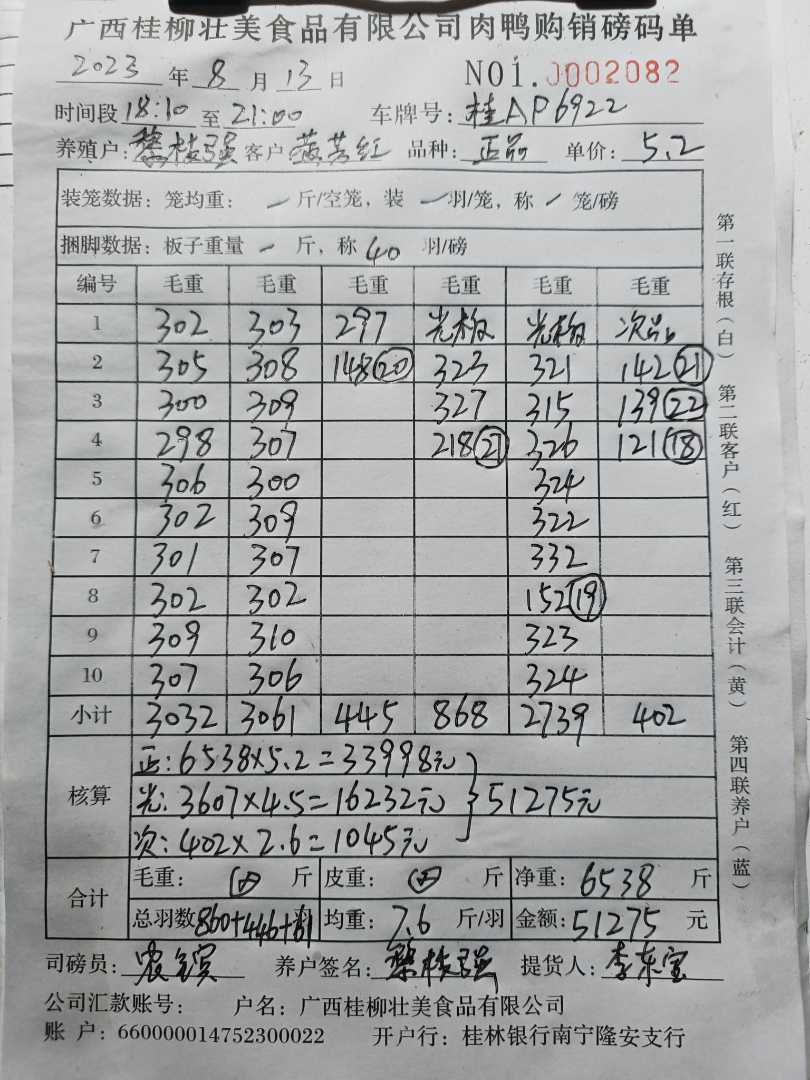 广西桂柳壮美食品有限公司肉鸭购销磅码单
2023 年 8 月 13 日 NO1.0002082
时间段 18:10 至 21:00 车牌号: 桂AP6922
养殖户: 黎枝强 客户 品种: 正品 单价: 5.2
装笼数据: 笼均重: 一 斤/空笼, 装 一 羽/笼, 称 / 笼/磅
捆脚数据: 板子重量 一 斤, 称 40 羽/磅
编号 毛重 毛重 毛重 毛重 毛重 毛重
1 302 303 297 光板 光板 次品
2 305 308 148⑳ 323 321 142㉑
3 300 309 327 315 139㉒
4 298 307 218㉗ 326 121⑱
5 306 300 324
6 302 309 322
7 301 307 332
8 302 302 152⑲
9 309 310 323
10 307 306 324
小计 3032 3061 445 868 2739 402
核算 正: 6538×5.2=33998元
光: 3607×4.5=16232元 } 51275元
次: 402×2.6=1045元
合计 毛重: 斤 皮重: 斤 净重: 6538 斤
总羽数 860+446+61 羽 均重: 7.6 斤/羽 金额: 51275 元
司磅员: 养户签名: 黎枝强 提货人: 李东宝
公司汇款账号: 户名: 广西桂柳壮美食品有限公司
账 户: 660000014752300022 开户行: 桂林银行南宁隆安支行
第一联存根(白) 第二联客户(红) 第三联会计(黄) 第四联养户(蓝)